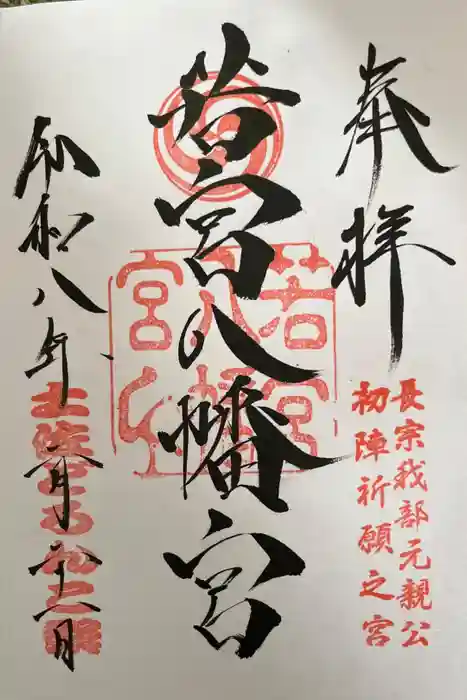 奉拝
長宗我部元親公
初陣祈願之宮
若宮八幡宮
若宮
八幡
宮
令和八年
月十一日